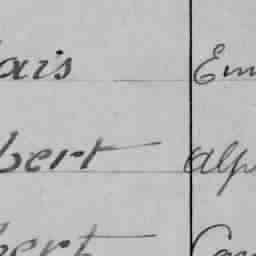 ais Em
bert Alp
bert